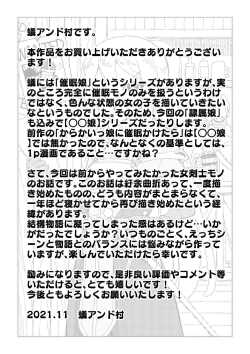 蟻アンド村です。
本作品をお買い上げいただきありがとうござい
ます！
蟻には「催眠娘」というシリーズがありますが、実
のところ完全に催眠モノのみを扱うというわけ
ではなく、色んな状態の女の子を描いていきたい
なというものでした。そのため、今回の「隷属娘」
も込みで【〇〇娘】シリーズだったりします。
前作の「からかいっ娘に催眠かけたら」は【〇〇娘
】では無かったので、なんとなくの基準としては、
1p漫画であること…ですかね？
さて、今回は前からやってみたかった女剣士モノ
のお話です。このお話は紆余曲折あって、一度描
き始めたものの、どうも内容がまとまらなくて、
一年ほど寝かせてから再び描き始めたという経
緯があります。
結構物語に凝ってしまった感はあるけど…いか
がだったでしょうか？いつものごとく、えっちシ
ーンと物語とのバランスには悩みながら作って
いますが、楽しんでいただけたら幸いです。
励みになりますので、是非良い評価やコメント等
いただけると、とても嬉しいです！
今後ともよろしくお願いいたします！
2021.11 蟻アンド村